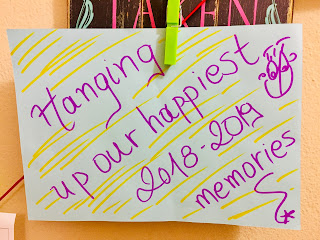 Hanging
up our happiest
2018-2019
memories